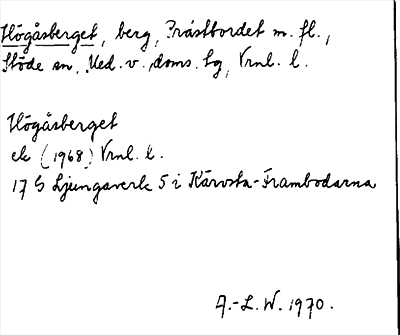 Högåsberget, berg, Prästbordet m. fl.,
Stöde sn, Med. v. doms. tg, Vrnl. l.
Högåsberget
ek (1968) Vrnl. l.
17 G Ljungaverk 5 i Kärvsta-Frambodarna
A.-L. W. 1970.